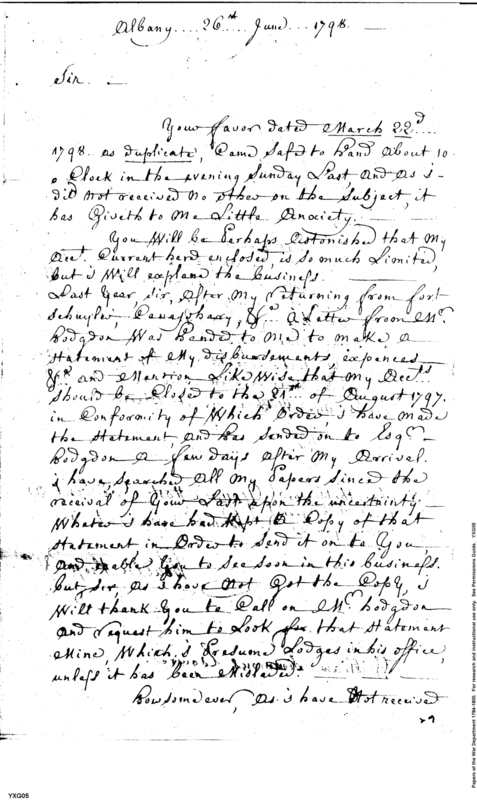 Albany .... 26st June .... 1798
Sir
Your favor dated March 22d
1798 as duplicate, Came Safd to hand About 10
o Clock in the evening Sunday Last, And As i
did Not received No other on the Subject, it
has Giveth to me Little Anxiety.
You Will be Perhaps Astonished that My
Acct. Current herd enclosed is so much Limited,
but i Will explane the business
Last Year, Sir, After My returning from fort
Schuyler, Canajohary, &c. A Letter from Mr.
hodgdon Was handed to Me to make A
Statement of My disbursements, expences
&c. and Mention Like Wise that My Accts
Should be Closed to the of August 1797.
in Conformity of Which Order, i have Made
the Statement, And has Sended on to Esqr.
hodgdon A few days After My Arrival.
i have, Searched All My Papers Since the
receival of Your Last upon the uncertainty
Whater i have had Kept A Copy of that
Statement in Order to Send it on to You,
And enable You to See Soon in this business.
but, Sir, As i have Not Got the Copy, i
Will thank You to Call on Mr. hodgdon
And request him to Look for that Statement
Mine, Which i Presume Lodges in his office,
unless it has been Mislaied.
howsomever, As i have Not received
YXG05
Papers of the War Department 1784-1800. For research and instructional use only. See Permissions Guide. YXG05